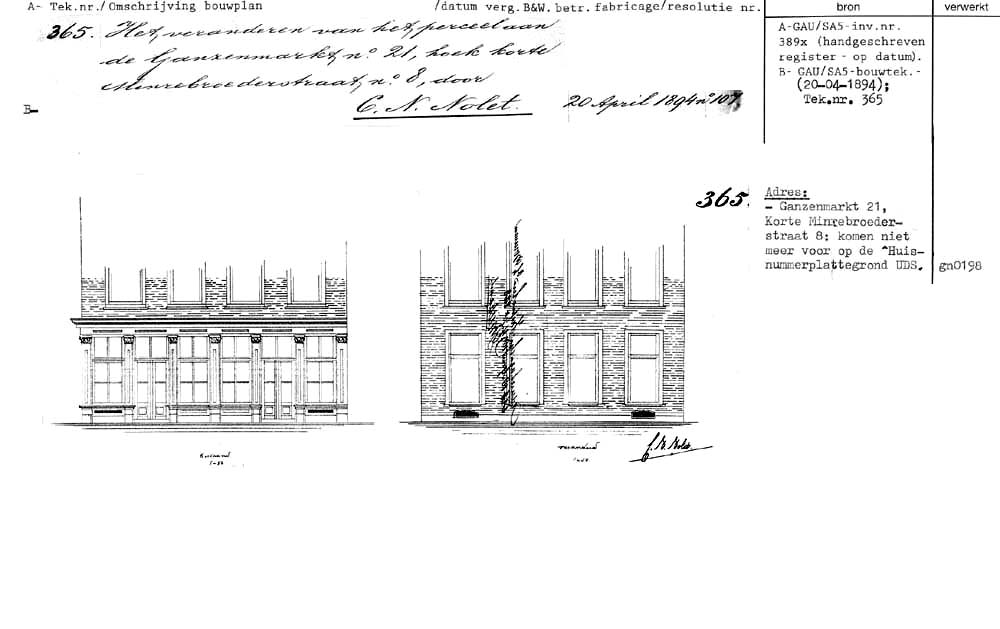 A- Tek.nr./Omschrijving bouwplan /datum verg.B&W.betr.fabricage/resolutie nr.
bron
verwerkt
365. Het veranderen van het perceel aan
de Ganzenmarkt, n° 21, hoek korte
Minrebroederstraat, n° 8, door
B- C. N. Nolet. 20 April 1894 n° 107.
A-GAU/SA5-inv.nr.
389x (handgeschreven
register - op datum).
B- GAU/SA5-bouwtek.-
(20-04-1894);
Tek.nr. 365
365.
Adres:
- Ganzenmarkt 21,
Korte Minrebroeder-
straat 8: komen niet
meer voor op de ^Huis-
nummerplattegrond UDS.
gn0198